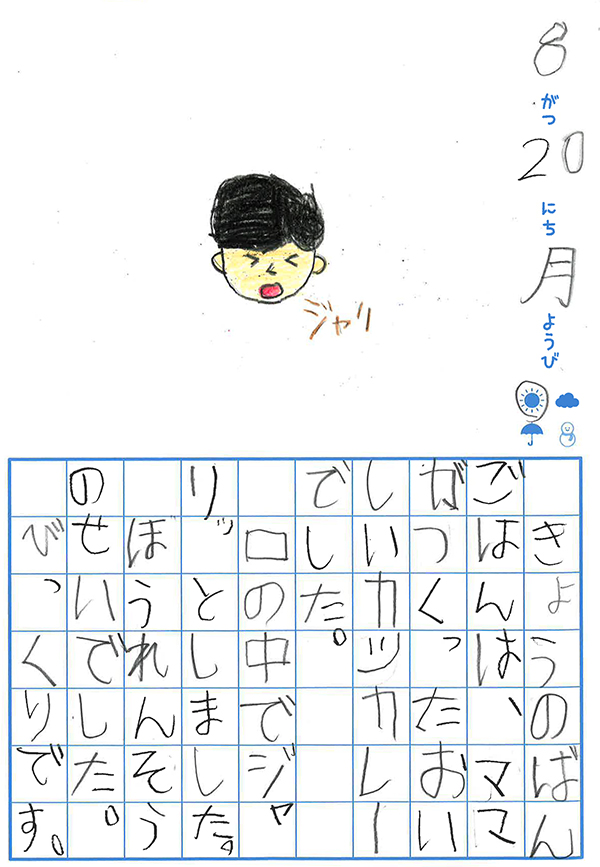 8がつ20にち月ようび
ジャリ
きょうのばん
ごはんは、ママ
がつくったおい
しいカツカレー
でした。
口の中でジャ
リッとしました。
ぼうれんそう
のせいでした。
びっくりです。